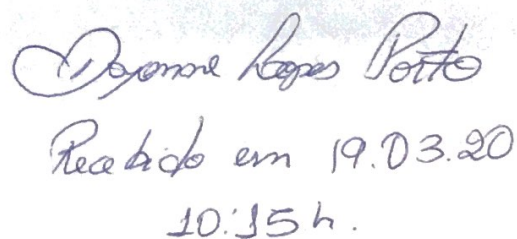 Dayanne Lopes Porto
Recebido em 19.03.20
10:15h.